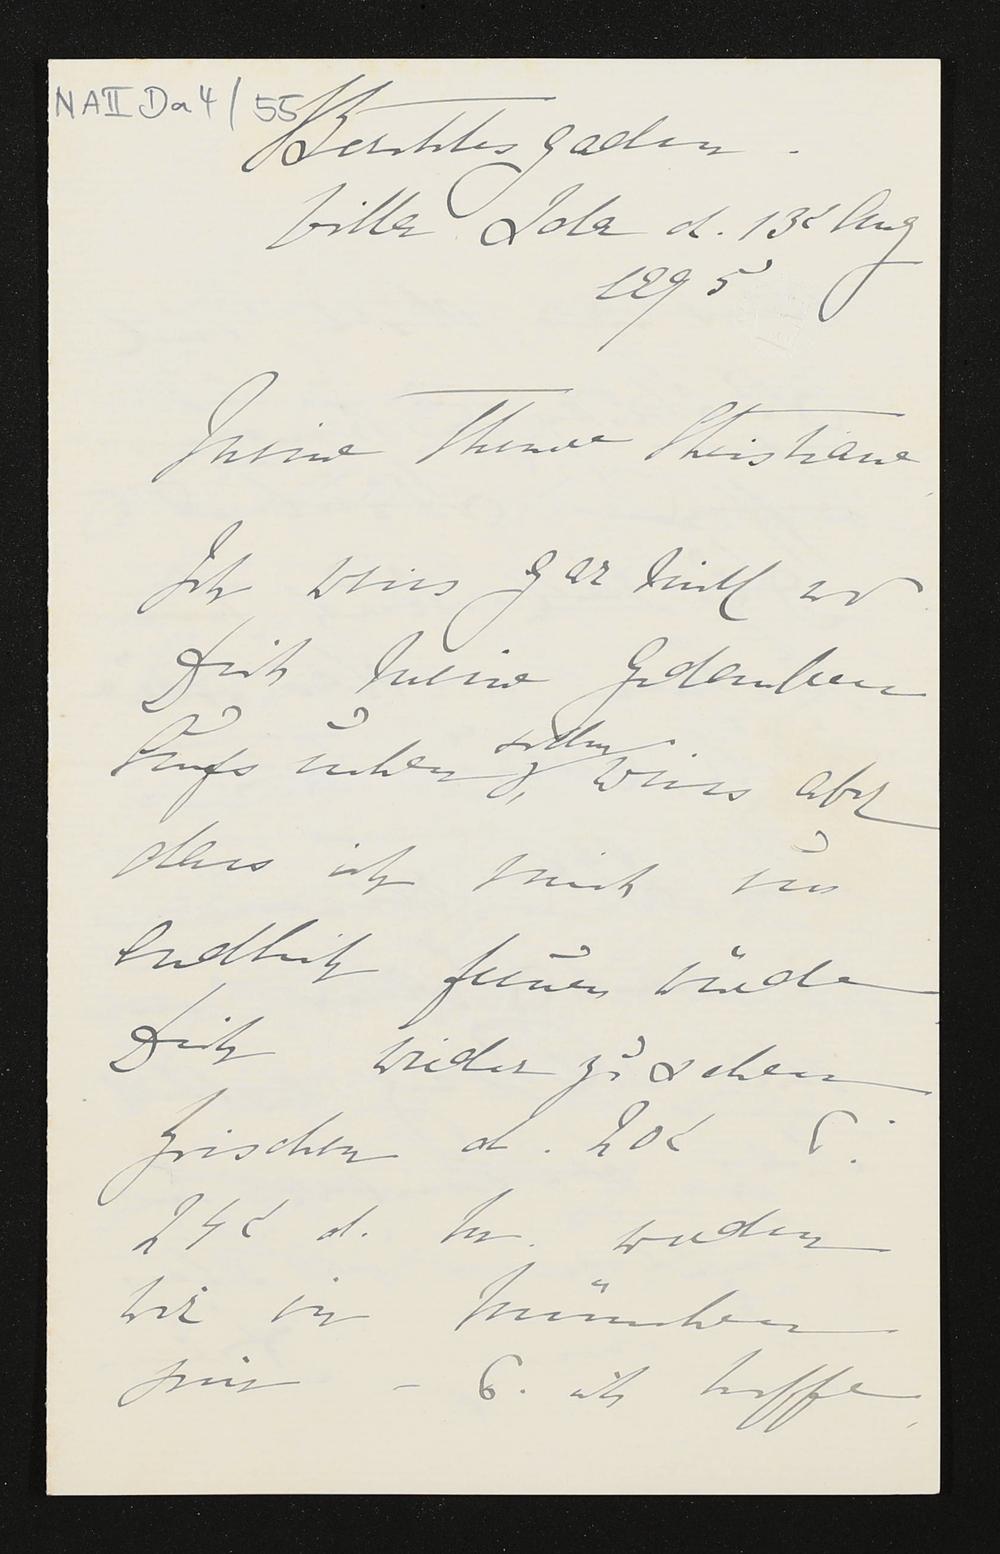 NA II Da 4/55
Berchtesgaden.
Villa Iola d. 13t Aug
1895
Meine Theure Christiane,
Ich weiss gar nicht wo
Dich meine Gedanken
suchen sollen, weiss aber
dass ich mich
endlich freuen würde
Dich wieder zu sehen
zwischen d. 20t &
24t d. M. werden
wir in München
sein - & ich hoffe,